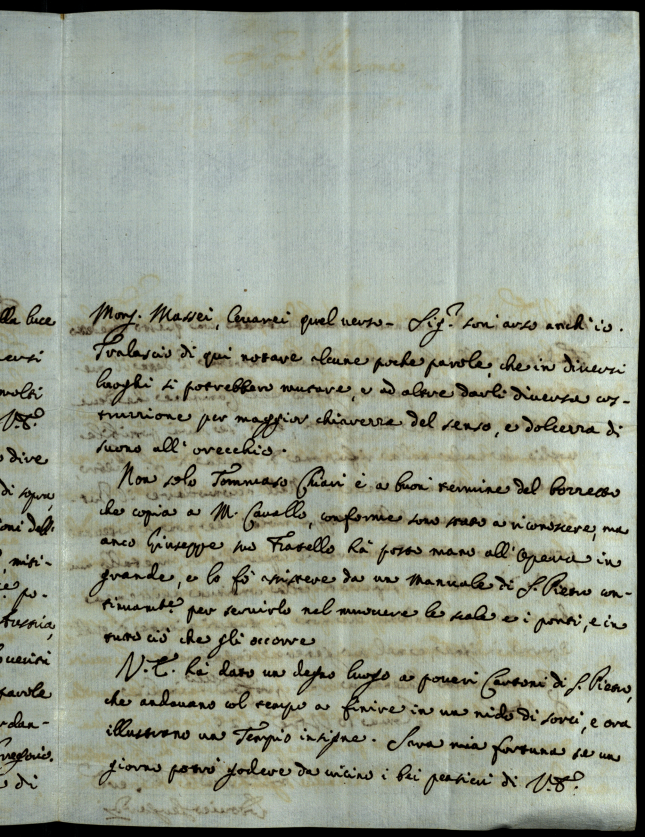 lla luce
versi
molti
V.E.
o dire
di sopra,
ioni dell'
, misti-
po-
Austria,
queriti
parole
rdan-
Gregorio.
di
Mons. Massei, leverei quel verso - Sig.re son arso anch'io.
Tralascio di qui notare alcune poche parole, che in diversi
luoghi si potrebbero mutare, e ad altre darli diversa cos-
truzzione per maggior chiarezza del senso, e dolcezza di
suono all'orecchio.
Non solo Tommaso Chiari è a buon termine del bozzetto
che copia a M. Cavallo, conforme sono stato a riconoscere, ma
anco Giuseppe suo Fratello hà posto mano all'Opera in
grande, e lo fò assistere da un Manuale di S. Pietro con-
tinuam.te per servirlo nel muovere le scale e i ponti, e in
tutto ciò che gli occorre
V.E. hà dato un degno luogo a poveri Cartoni di S. Pietro,
che andavano col tempo a finire in un nido di sorci, e ora
illustrano un Tempio insigne. Sara mia fortuna se un
giorno potrò godere da vicino i bei pensieri di V.E.